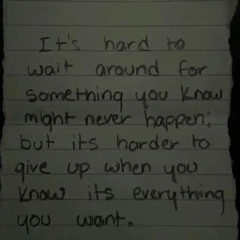 It's hard to
wait around for
something you know
might never happen;
but its harder to
give up when you
know its everything
you want.